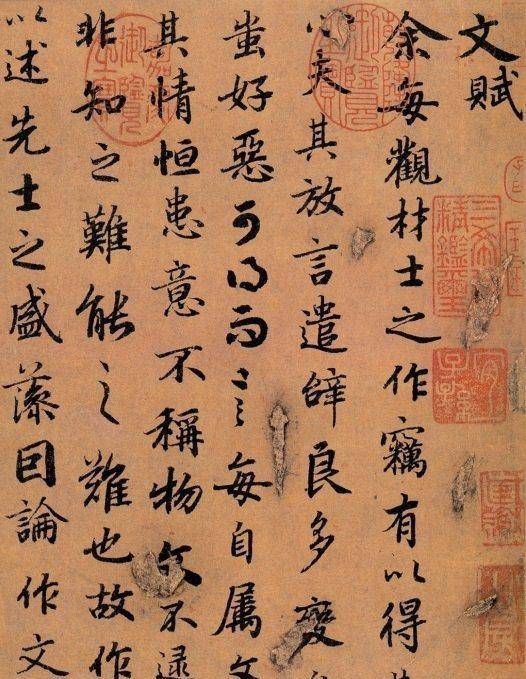 文賦
余每觀材士之作竊有以得
心夫其放言遣辤良多變
蚩好惡可得而言每自属文
其情恒患意不稱物文不逮
非知之難能之難也故作
以述先士之盛藻因論作文
三希堂精鑑璽
宜子孫